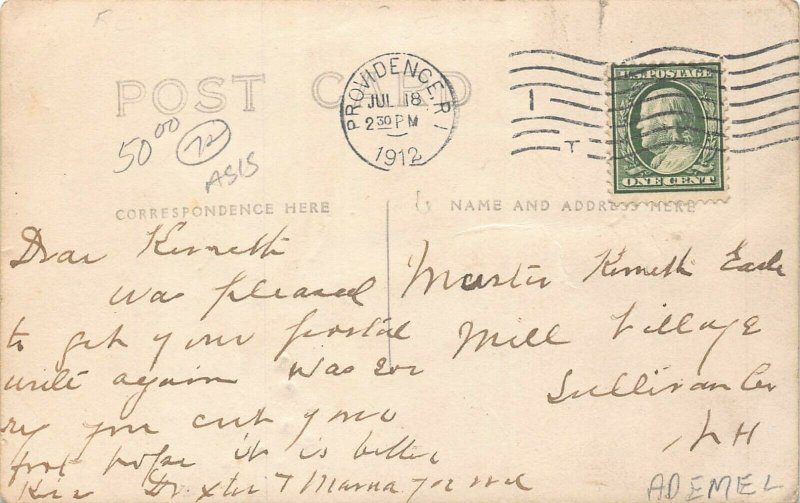 POST CARD
PROVIDENCE, R.I.
JUL 18
2 30 PM
1912
1
T
U.S. POSTAGE
ONE CENT
50 00
72
ASIS
CORRESPONDENCE HERE
NAME AND ADDRESS HERE
Dear Kenneth
was pleased
to get your postal
write again was sor
ry you cut your
foot hope it is better
Dexter & Mama for me
Master Kenneth
Mill Village
Sullivan Co
N H
ADEMEL